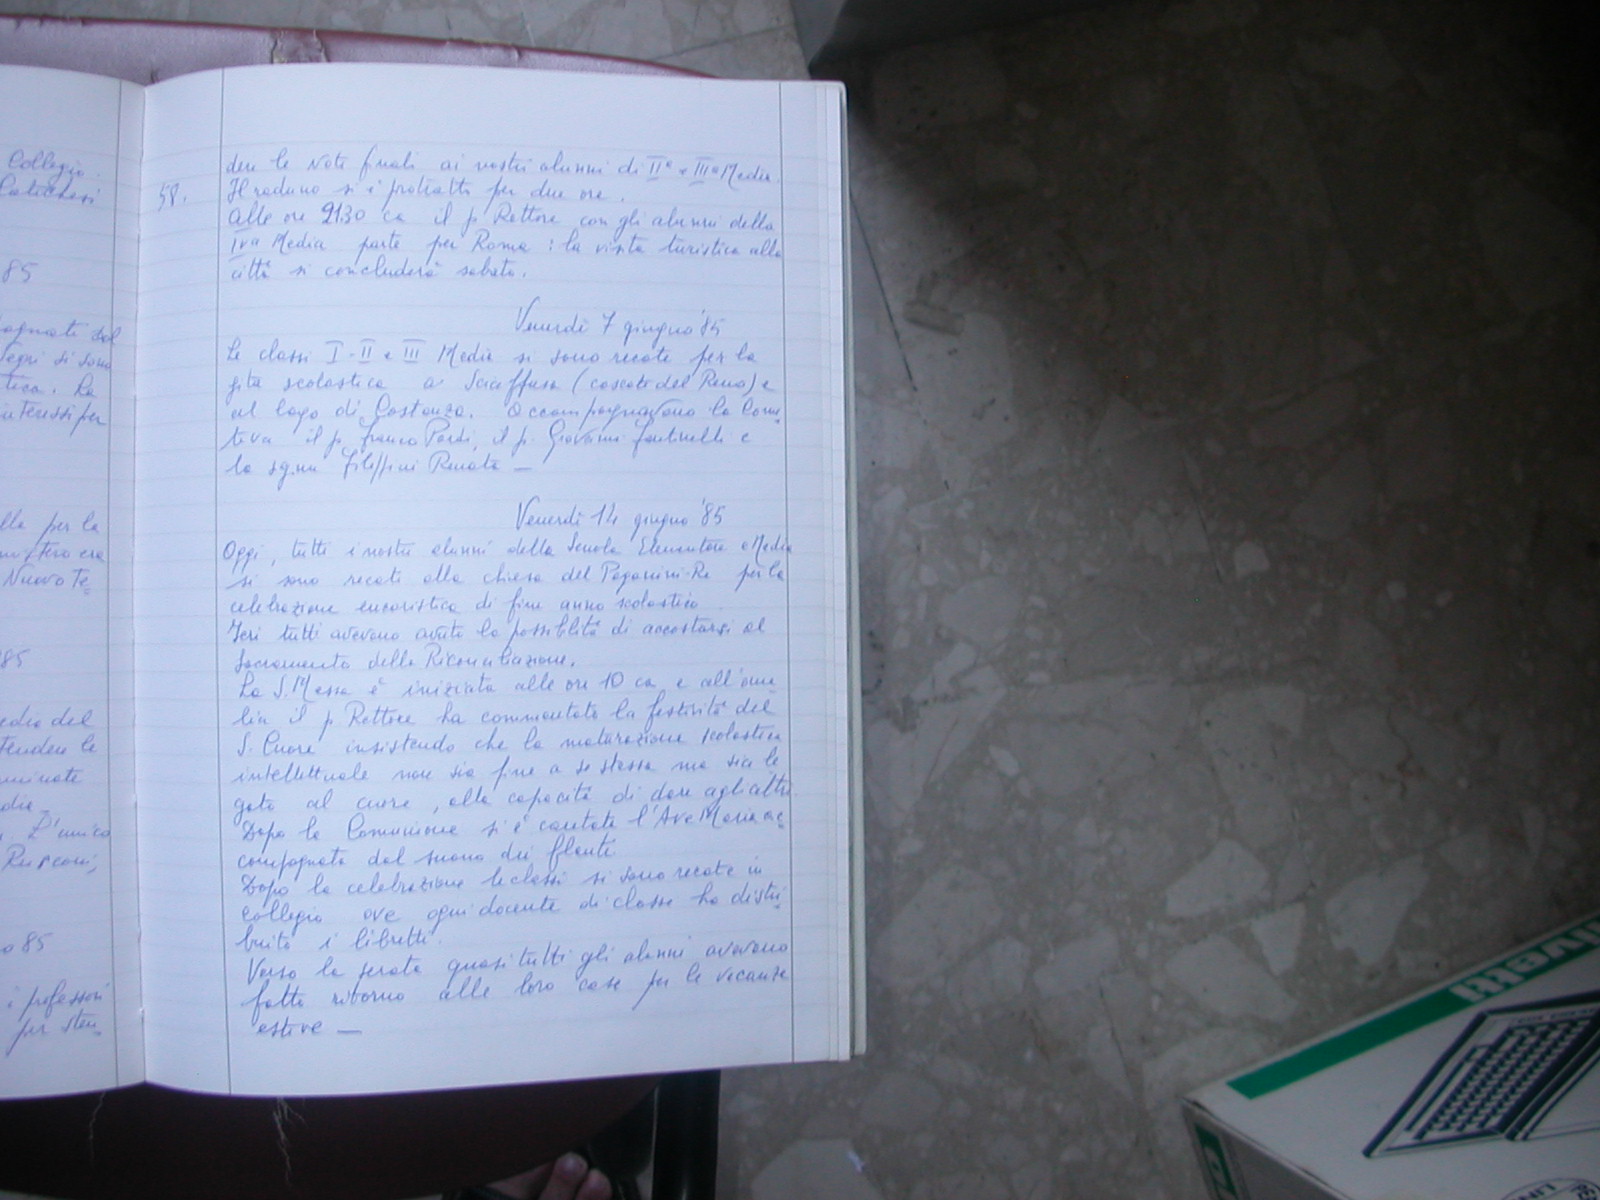 Collegio
85
lla per la
Nuovo Te=
'85
edia del
L'unico
Rusconi,
o 85
i professori
per sten=
58.
dere le note finali ai nostri alunni di IIa e IIIa Media.
Il raduno si è protratto per due ore.
Alle ore 21.30 ca il p Rettore con gli alunni della
IVa Media parte per Roma: la visita turistica alla
città si concluderà sabato.
Venerdì 7 giugno '85
Le classi I - II e III Media si sono recate per la
gita scolastica a Sciaffusa (cascate del Reno) e
al lago di Costanza. Accompagnavano la comi=
tiva il p. Franco Pardi, il p. Giovanni e
la sig.na Filippini Renata —
Venerdì 14 giugno '85
Oggi, tutti i nostri alunni della Scuola Elementare e Media
si sono recati alla chiesa del Paganini-Re per la
celebrazione eucaristica di fine anno scolastico
Ieri tutti avevano avuto la possiblità di accostarsi al
Sacramento della Riconciliazione.
La S. Messa è iniziata alle ore 10 ca e all'ome
lia il p Rettore ha commentato la festività del
S. Cuore insistendo che la maturazione scolastica
intellettuale non sia fine a se stessa ma sia le
gata al cuore, alla capacità di dare agli altri.
Dopo la Comunione si è cantata l'Ave Maria ac=
compagnata dal suono dei flauti
Dopo la celebrazione le classi si sono recate in
collegio ove ogni docente di classe ha distri=
buito i libretti.
Verso la serata quasi tutti gli alunni avevano
fatto ritorno alle loro case per le vacanze
estive —
ivetti